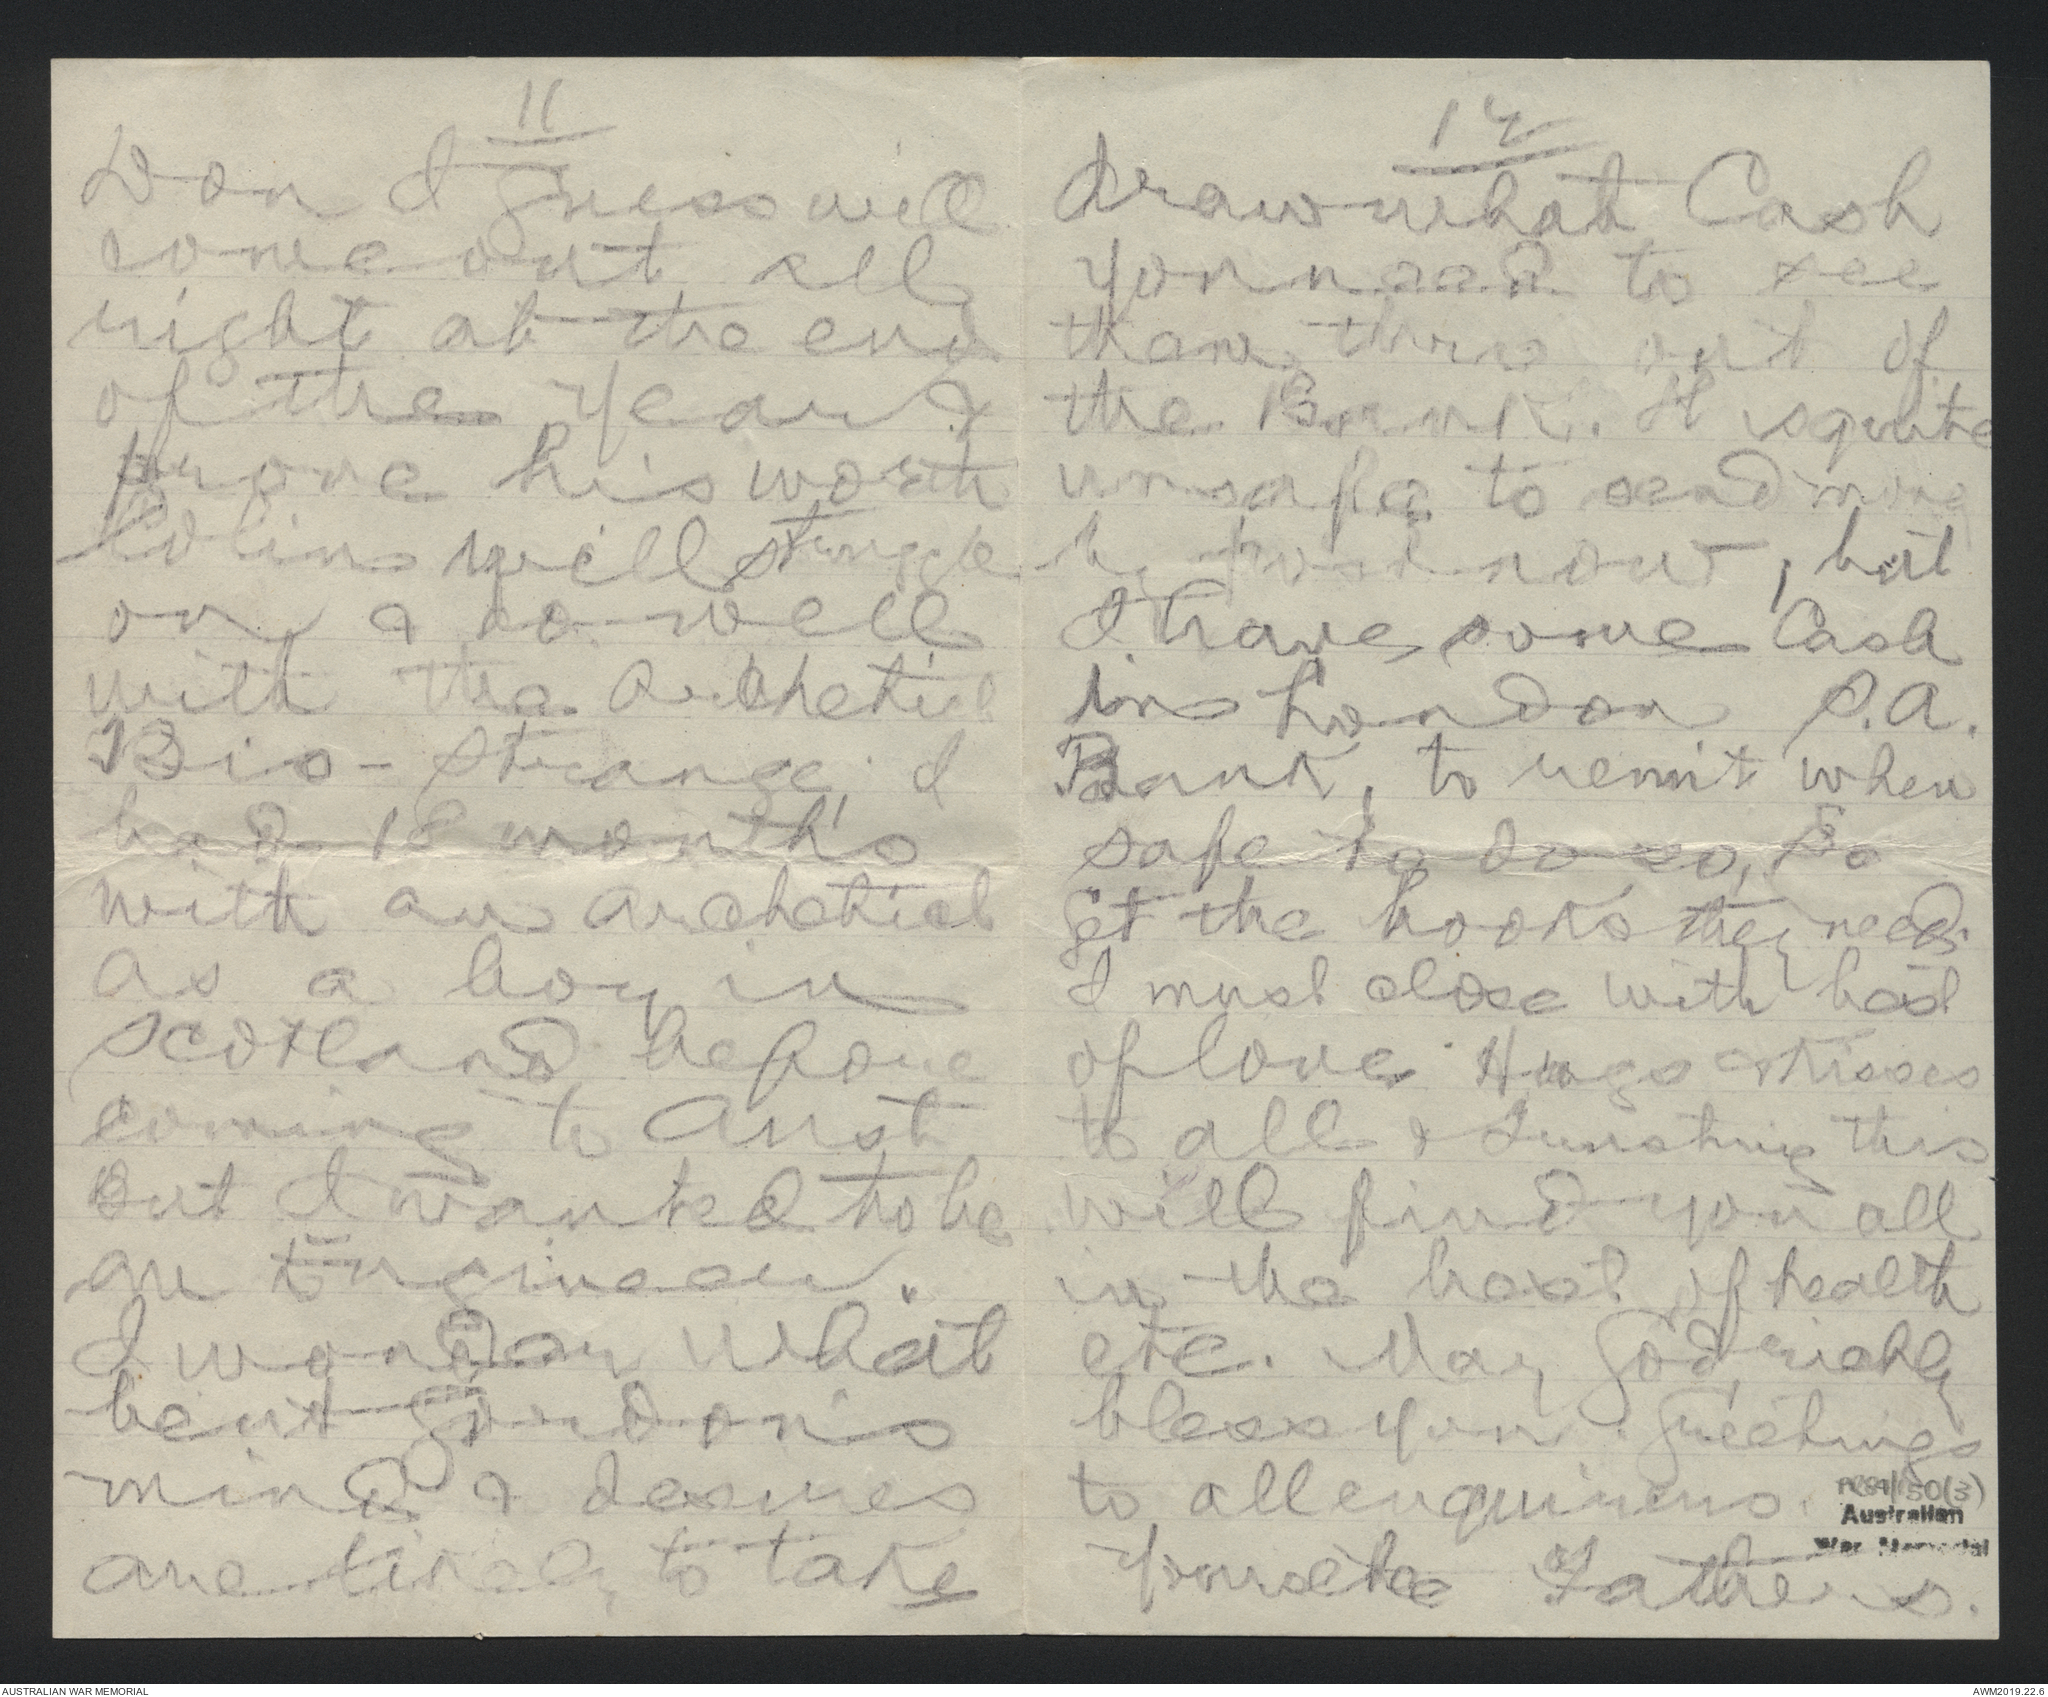 11
Don I guess will
come out all
right at the end
of the Year &
prove his worth
Colin will struggle
on, & do well
with the Archetict
Bis - Strange I
had 18 month's
with an archetict
as a boy in
Scotland before
coming to Aust
But I wanted to be
an Engineer.
I wonder what
bent Gordon's
mind & desires
are likely to take
12
draw what Cash
you need to see
them thru out of
the Bank. It is quite
unsafe to send money
by post now, but
I have some Cash
in London S.A.
Bank, to remit when
safe to do so, So
get the books they need
I must close with best
of love Hugs & Kisses
to all & Trusting this
will find you all
in the best of health
etc. May God richly
bless you. Greetings
to all enquirers.
Yours etc Fathers.
PR89/150(3)
Australian
War Memorial
AUSTRALIAN WAR MEMORIAL
AWM2019.22.6